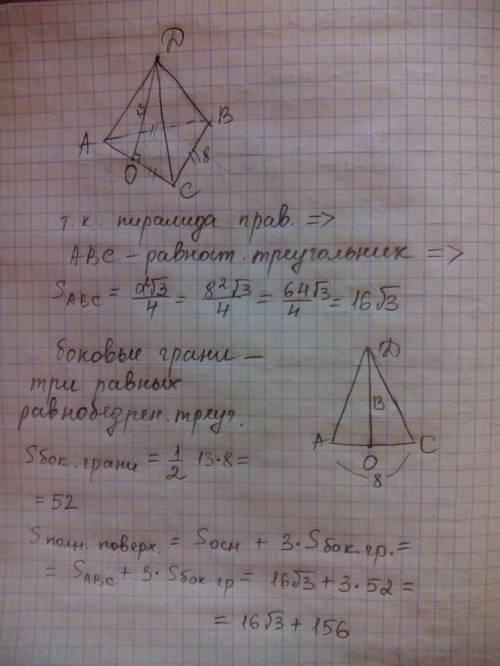 D
13
A
B
8
O
C
т.к. пирамида прав. =>
ABC – равност. треугольник =>
S ABC = a²√3/4 = 8²√3/4 = 64√3/4 = 16√3
боковые грани –
три равных
равнобедрен. треуг.
D
13
A
O
C
8
S бок. грани = 1/2 13·8 =
= 52
S полн. поверх. = S осн + 3·S бок. гр. =
= S ABC + 3·S бок. гр = 16√3 + 3·52 =
= 16√3 + 156